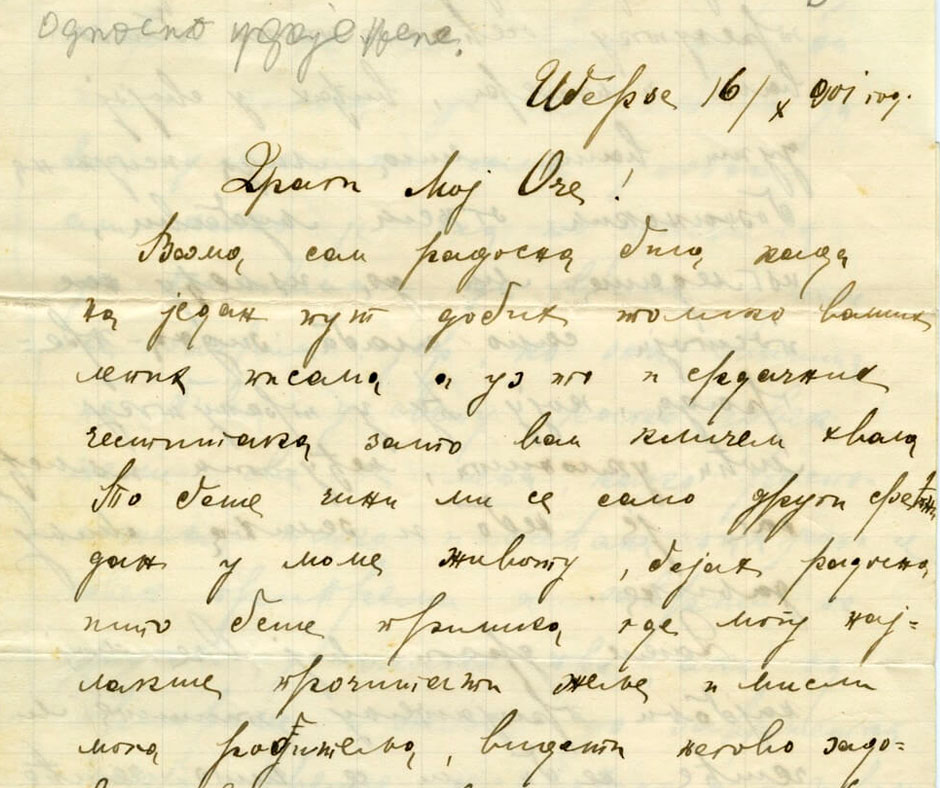 Односно уређене.
Иберье 16/X 901 год.
Драги Мој Оче!
Веома сам радосна била када
на једанк пут добих толико ваших
летих писама а уз то и срдачних
честитака зато вам кличем хвала
То беше чини ми се само други срећни
дан у моме животу, бејах радосна
што беше прилика где могу нај=
лакше прочитати жеље и мисли
мога родитеља, видети његово задо=